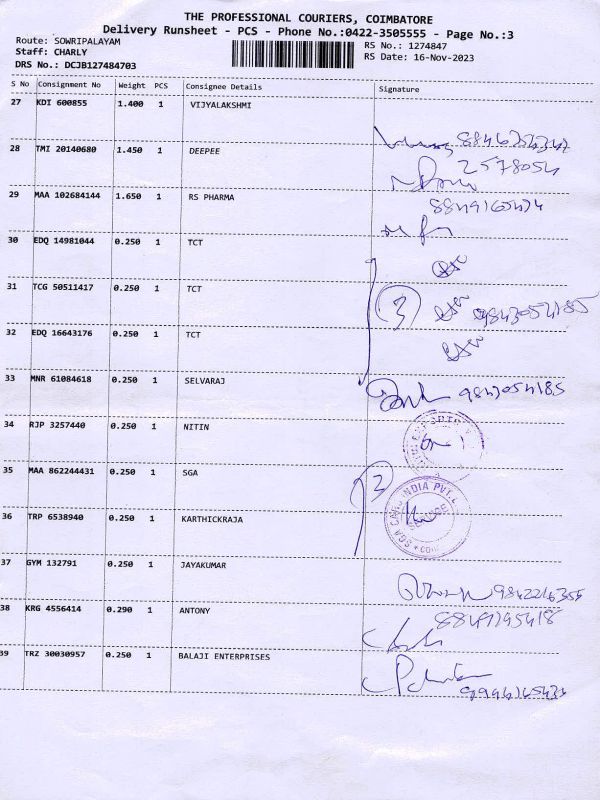 THE PROFESSIONAL COURIERS, COIMBATORE
Delivery Runsheet - PCS - Phone No.:0422-3505555 - Page No.:3
Route: SOWRIPALAYAM
RS No.: 1274847
Staff: CHARLY
RS Date: 16-Nov-2023
DRS No.: DCJB127484703
S No Consignment No Weight PCS Consignee Details Signature
27 KDI 600855 1.400 1 VIJYALAKSHMI
28 TMI 20140680 1.450 1 DEEPEE
2578054
29 MAA 102684144 1.650 1 RS PHARMA
30 EDQ 14981044 0.250 1 TCT
31 TCG 50511417 0.250 1 TCT
3 9843054185
32 EDQ 16643176 0.250 1 TCT
33 MNR 61084618 0.250 1 SELVARAJ
9843054185
34 RJP 3257440 0.250 1 NITIN
35 MAA 862244431 0.250 1 SGA
SGA CARS INDIA PVT.L
36 TRP 6538940 0.250 1 KARTHICKRAJA
37 GYM 132791 0.250 1 JAYAKUMAR
38 KRG 4556414 0.290 1 ANTONY
39 TRZ 30030957 0.250 1 BALAJI ENTERPRISES